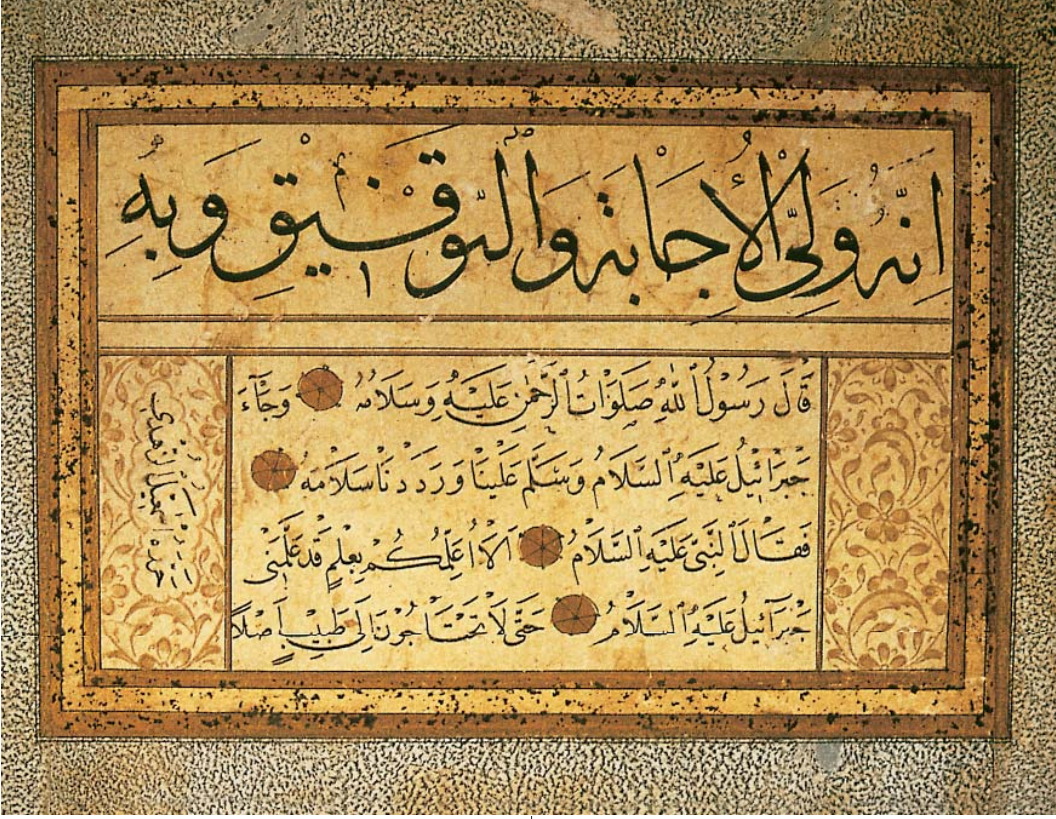 اِنَّهُ وَلِيُّ الْاِجَابَةِ وَالتَّوْفِيْقِ وَبِهِ
قَالَ رَسُولُ اللّٰهِ صَلَوَاتُ الرَّحْمٰنِ عَلَيْهِ وَسَلَامُهُ وَجَآءَ
جَبْرَائِيلُ عَلَيْهِ السَّلَامُ وَسَلَّمَ عَلَيْنَا وَرَدَدْنَا سَلَامَهُ
فَقَالَ النَّبِيُّ عَلَيْهِ السَّلَامُ اَلَا اُعَلِّمُكُمْ بِعِلْمٍ قَدْ عَلَّمَنِي
جَبْرَآئِيلُ عَلَيْهِ السَّلَامُ حَتّٰى لَا تَحْتَاجُونَ اِلٰى طَبِيبٍ اَصْلًا